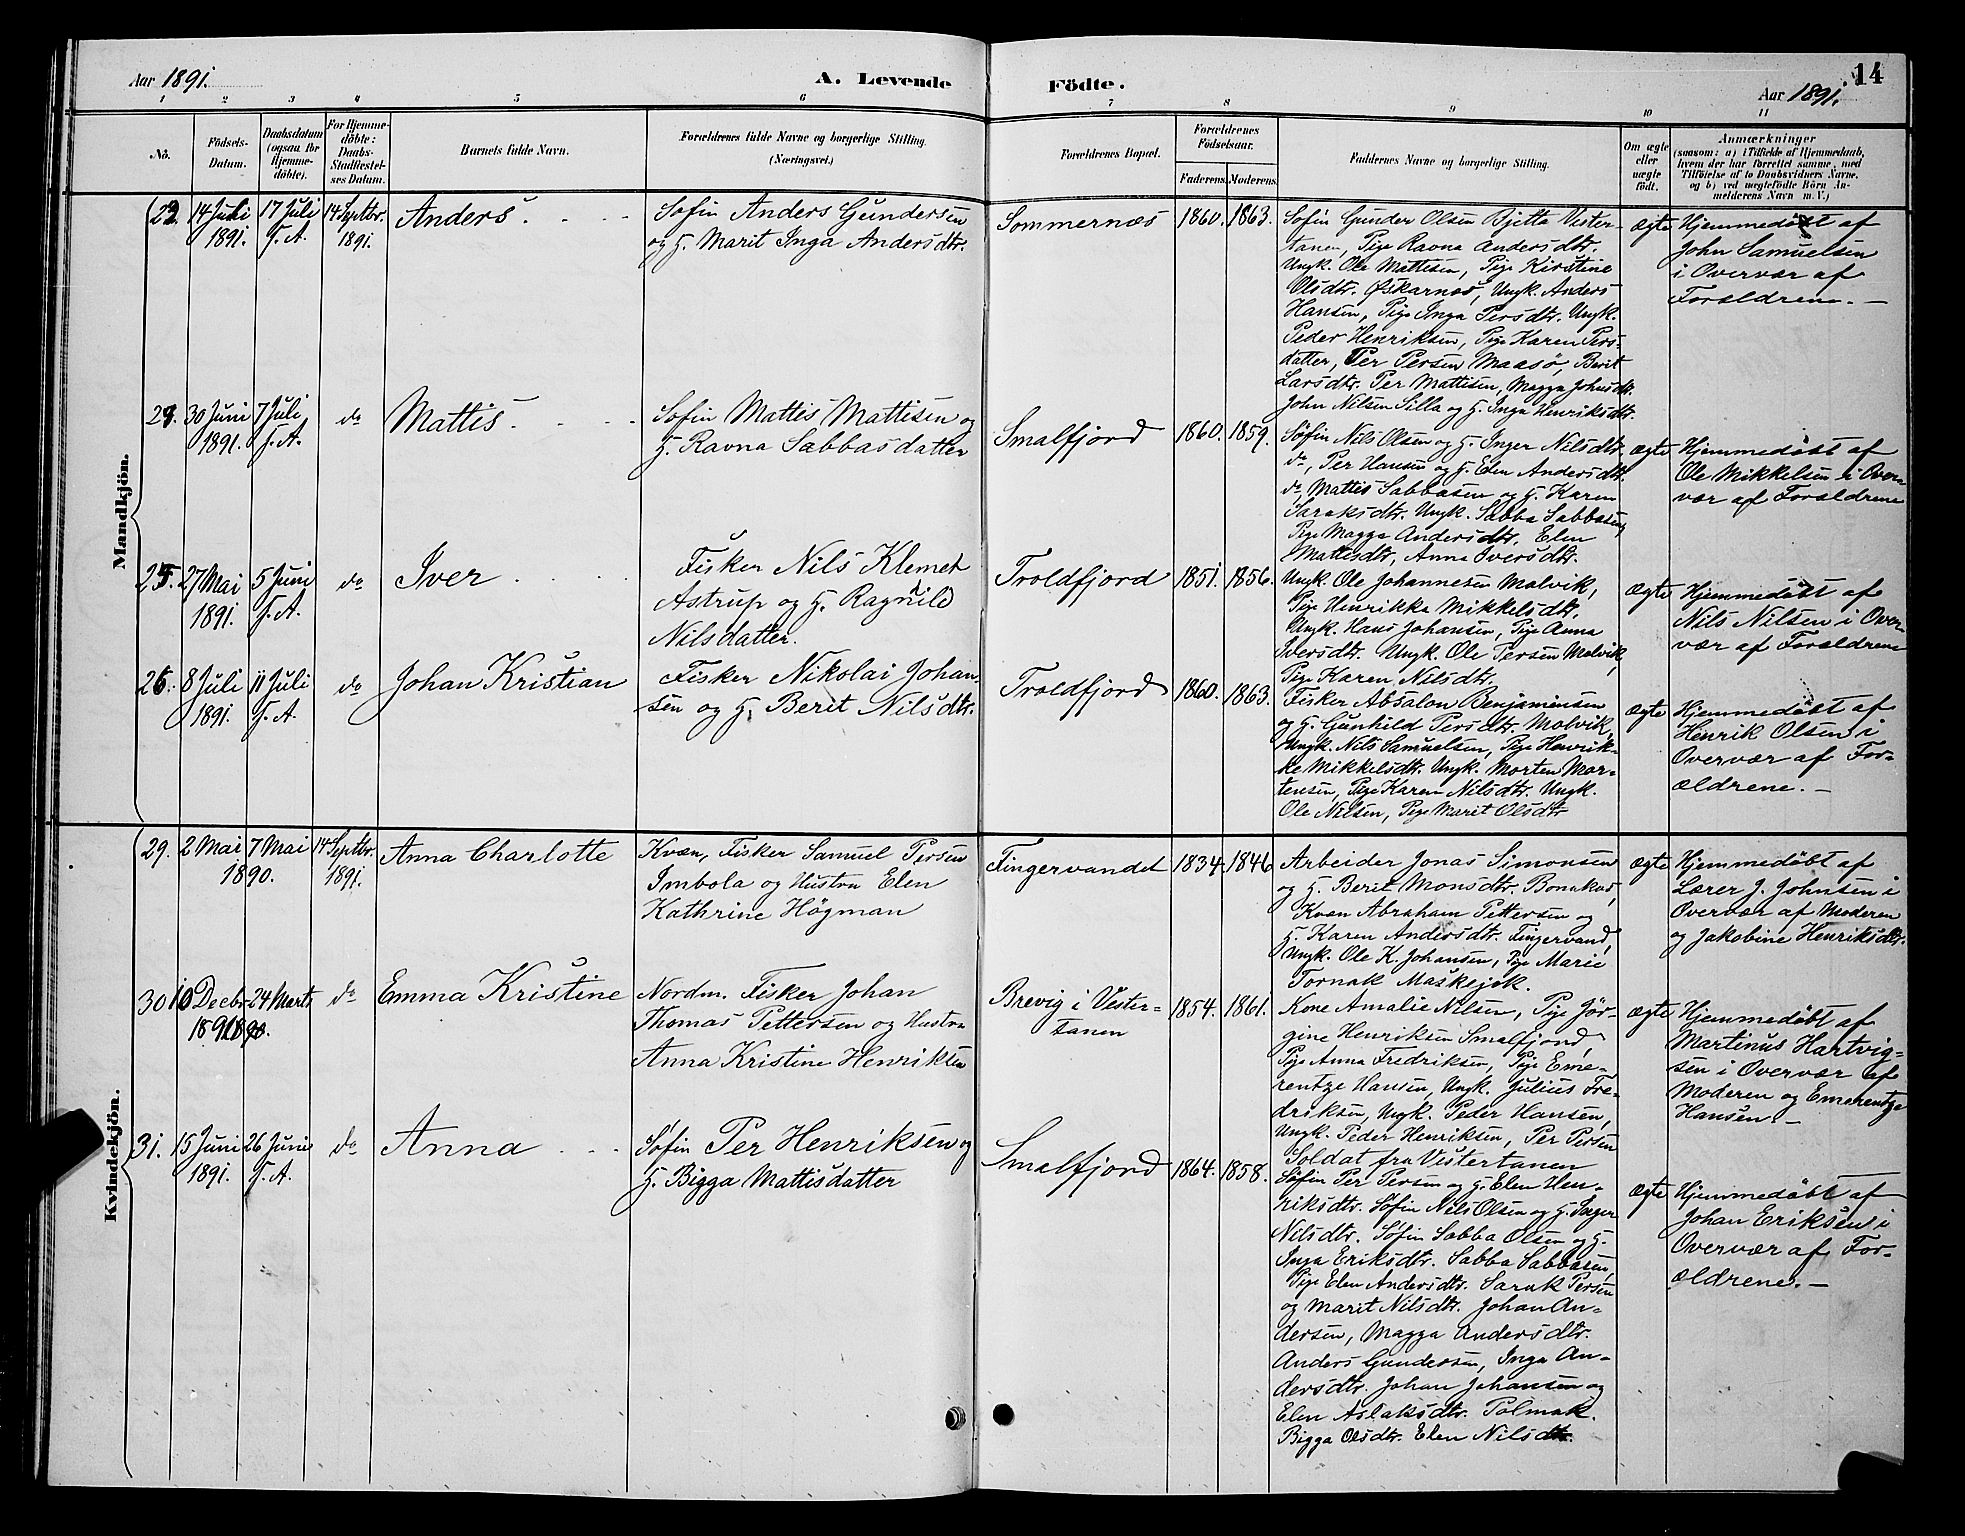 Aar 1891.
A. Levende
Födte.
14
Aar 1891.
1 2 3 4 5 6 7 8 9 10 11
Nô.
Födsels-
Datum.
Daabsdatum
(ogsaa for
Hjemme-
döbte).
For Hjemme-
döbte:
Daabs-
Stadfæstel-
ses Datum.
Barnets fulde Navn.
Forældrenes fulde Navne og borgerlige Stilling.
(Næringsvei.)
Forældrenes Bopæl.
Forældrenes
Födselsaar.
Faderens.
Moderens.
Faddernes Navne og borgerlige Stilling.
Om ægte
eller
uægte
født.
Anmærkninger
(saasom: a) i Tilfælde af Hjemmedaab,
hvem der har forrettet samme, med
Tilföielse af to Daabsvidners Navne,
og b) ved uægtefödte Börn An-
melderens Navn m. V.)
Mandkjön.
14 Juli
1891.
17 Juli
s. A.
14 Septbr.
1891.
Anders.
Søfin Anders Gundersen
og H. Marit Inga Andersdtr.
Sommernæs
1860.
1863.
Søfin Gunder Olsen Bjetta Vester-
tanen, Pige Ravna Andersdtr.
Ungk. Ole Mattisen, Pige Kirstine
Olsdtr. Øskarnæs, Ungk. Anders
Hansen, Pige Inga Persdtr. Ungk.
Peder Henriksen, Pige Karen Pers-
datter, Per Persen Maasø, Berit
Larsdtr. Per Mattisen, Magga Johnsdtr.
John Nilsen Silla og H. Inga Henriksdtr.
ægte
Hjemmedøbt af
John Samuelsen
i Overvær af
Forældrene. —
30 Juni
1891.
7 Juli,
s. A.
do
Mattis.
Søfin Mattis Mattisen og
H. Ravna Sabbasdatter
Smalfjord
1860.
1859.
Søfin Nils Olsen og H. Inger Nilsdtr.
do, Per Hansen og H. Elen Andersdtr.
do, Mattis Sabbasen og H. Karen
Saraksdtr. Ungk. Sabba Sabbasen,
Pige Magga Andersdtr. Elen
Mattisdtr, Anna Iversdtr.
ægte
Hjemmedøbt af
Ole Mikkelsen i Over-
vær af Forældrene
25.
27 Mai
1891.
5 Juni
s. A.
do
Iver
Fisker Nils Klemet
Astrup og H. Ragnild
Nilsdatter.
Troldfjord
1851.
1856.
Ungk. Ole Johannesen Molvik,
Pige Henrikka Mikkelsdtr.
Ungk. Hans Johansen, Pige Anna
Iversdtr. Ungk. Ole Persen Molvik,
Pige Karen Nilsdtr.
ægte
Hjemmedøbt af
Nils Nilsen i Over-
vær af Forældrene
26.
8 Juli
1891.
11 Juli
s. A.
do
Johan Kristian
Fisker Nikolai Johan-
sen og H. Berit Nilsdtr.
Troldfjord
1860.
1863.
Fisker Absalon Benjaminsen
og H. Gunhild Persdtr. Molvik,
Ungk. Nils Samuelsen, Pige Henrik-
ke Mikkelsdtr. Ungk. Morten Mor-
tensen, Pige Karen Nilsdtr. Ungk.
Ole Nilsen, Pige Marit Olsdtr
ægte
Hjemmedøbt af
Henrik Olsen i
Overvær af For-
ældrene. —
Kvindekjön.
29.
2 Mai
7 Mai
1890.
14 Septbr.
1891.
Anna Charlotte
Kvæn, Fisker Samuel Persen
Imbola og Hustru Elen
Kathrine Högman
Fingervandet
1834.
1846
Arbeider Jonas Simonsen
og H. Berit Monsdtr. Bonakas,
Kvæn Abraham Pettersen og
H. Karen Andersdtr. Fingervand,
Ungk. Ole K. Johansen, Pige Marie
Tornak Maskejok.
ægte
Hjemmedøbt af
Lærer J. Johnsen i
Overvær af Moderen
og Jakobine Henriksdtr.
30
10 Decbr.
24 Marts
do
Emma Kristine
Nordm. Fisker Johan
Thomas Pettersen og Hustru
Anna Kristine Henriksen
Brevig i Vester-
tanen
1854.
1861.
Kone Amalie Nilsen, Pige Jör-
gine Henriksen Smalfjord,
Pige Anna Fredriksen, Pige Eme-
rentze Hansen, Ungk. Julius Fre-
driksen, Ungk. Peder Hansen,
Ungk. Peder Henriksen, Per Persen
Soldat fra Vestertanen
ægte
Hjemmedøbt af
Martinus Hartvig-
sen i Overvær af
Moderen og Emerentze
Hansen. —
31.
15 Juni
1891.
26 Juni
s. A.
do
Anna
Søfin Per Henriksen og
H. Bigga Mattisdatter
Smalfjord
1864.
1858.
Søfin Per Persen og H. Elen Hen-
riksdtr. Søfin Nils Olsen og H. Inger
Nilsdtr. Søfin Sabba Olsen og H.
Inga Eriksdtr. Sabba Sabbasen,
Pige Elen Andersdtr. Sarak Persen
og Marit Nilsdtr. Johan An-
dersen, Magga Andersdtr.
Anders Gundersen, Inga An-
dersdtr. Johan Johansen og
Elen Aslaksdtr. Polmak.
Bigga Olsdtr. Elen Nilsdtr.
ægte
Hjemmedøbt af
Johan Eriksen i
Overvær af For-
ældrene. —